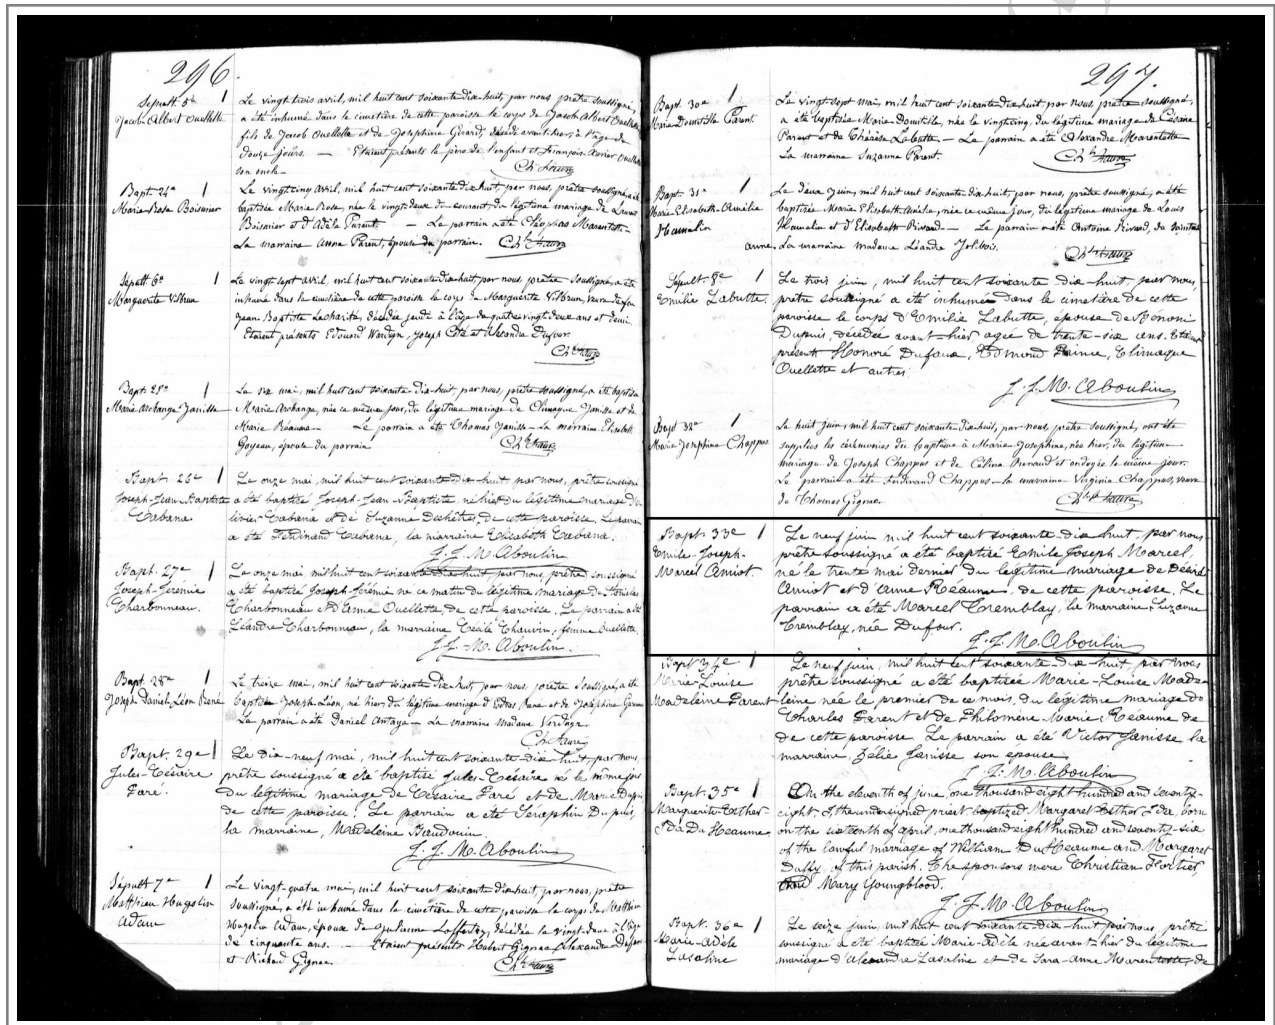 296.
Sepult 5e
Jacob Albert Ouellette
Le vingt trois avril, mil huit cent soixante dix-huit, par nous prêtre soussigné,
a été inhumé dans le cimetière de cette paroisse le corps de Jacob Albert Ouellette
fils de Jacob Ouellette et de Josephine Girard, décédé avant hier, à l'age de
douze jours. — Etaient présents le père de l'enfant et François Xavier Ouellette
son oncle —
Bapt. 24e
Marie Rose Boismier
Le vingt cinq avril, mil huit cent soixante dix huit, par nous, prêtre soussigné, a été
baptisée Marie Rose, née le vingt deux du courant, du légitime mariage de
Boismier et d'Adèle Parent. — Le parrain a été Cléophas Marentette —
La marraine Anne Parent, épouse du parrain.
Sepult 6e
Marguerite Vilbrun
Le vingt sept avril, mil huit cent soixante dix huit, par nous prêtre soussigné, a été
inhumé dans le cimetière de cette paroisse le corps de Marguerite Vilbrun, veuve de feu
Jean Baptiste Lacharité, décédée jeudi à l'âge de quatre vingt deux ans et demi.
Etaient présents Edouard Joseph Côté et Alexandre Dufour.
Bapt. 25e
Marie Archange Janisse
Le six mai, mil huit cent soixante dix-huit, par nous, prêtre soussigné, a été baptisée
Marie Archange, née ce même jour, du légitime mariage de Climaque Janisse et de
Marie Réaume — Le parrain a été Thomas Janisse — La marraine Elisabeth
Goyeau, épouse du parrain
Bapt. 26e
Joseph-Jean Baptiste
Cabana.
Le onze mai, mil huit cent soixante-dix-huit par nous, prêtre soussigné
a été baptisé Joseph-Jean Baptiste, né hier du légitime mariage d'O-
livier Cabana et de Suzanne Deshêtres, de cette paroisse. Le parrain
a été Ferdinand Cabana, la marraine Elisabeth Cabana.
J. J. M. Aboulin
Bapt. 27e
Joseph-Jérémie
Charbonneau.
Le onze mai mil huit cent soixante dix huit par nous, prêtre soussigné
a été baptisé Joseph-Jérémie né ce matin du légitime mariage de
Charbonneau et d'Amie Ouellette, de cette paroisse. Le parrain a été
Léandre Charbonneau, la marraine Cécile Chauvin, femme Ouellette.
J. J. M. Aboulin.
Bapt. 28e
Joseph Daniel Léon
Le treize mai, mil huit cent soixante dix huit, par nous prêtre soussigné, a été
baptisé Joseph Léon, né hier du légitime mariage d' et de Joséphine
Le parrain a été Daniel Antaya — La marraine Madame
Bapt. 29e
Jules-Césaire
Paré.
Le dix-neuf mai, mil huit cent soixante dix-huit, par nous,
prêtre soussigné a été baptisé Jules-Césaire né le même jour
du légitime mariage de Césaire Paré et de Marie Dupuis
de cette paroisse. Le parrain a été Séraphin Dupuis,
la marraine, Madeleine Beaudouin.
J. J. M. Aboulin
Sépult 7e
Matthieu Hugolin
Adam
Le vingt-quatre mai, mil huit cent soixante dix-huit, par nous, prêtre
soussigné, a été inhumé dans le cimetière de cette paroisse le corps de Matthieu
Hugolin Adam, époux de Julienne Lafferty, décédé le vingt-deux à l'âge
de cinquante ans. — Etaient présents Hubert Gignac, Alexandre
et Richard Gignac.
297.
Bapt. 30e
Marie Domitille Parent
Le vingt sept mai, mil huit cent soixante dix huit, par nous prêtre soussigné,
a été baptisée Marie Domitille, née le vingt cinq, du légitime mariage de Césaire
Parent et de Thérèse Labutte. — Le parrain a été Alexandre Marentette
La marraine Suzanne Parent.
Bapt. 31e
Marie Elisabeth Amélie
Hamelin
Le deux juin, mil huit cent soixante dix huit, par nous, prêtre soussigné, a été
baptisée Marie Elisabeth Amélie, née ce même jour, du légitime mariage de Louis
Hamelin et d'Elisabeth Rivard — Le parrain a été Antoine Rivard, de Sainte
anne, La marraine madame Léandre Jolibois.
Sépult. 8e
Emilie Labutte.
Le trois juin, mil huit cent soixante-dix-huit, par nous,
prêtre soussigné a été inhumé dans le cimetière de cette
paroisse le corps d'Emilie Labutte, épouse de Bénoni
Dupuis, décédée avant-hier agée de trente-six ans. Etaient
présents Honoré Dufaux, Edmond Climaque
Ouellette et autres.
J. J. M. Aboulin
Bapt 32e
Marie Josephine Chappus
Le huit juin, mil huit cent soixante-dix-huit, par nous, prêtre soussigné, ont été
supplées les cérémonies du baptême à Marie Josephine, née hier, du légitime
mariage de Joseph Chappus et de Célina Renaud et ondoyée le même jour.
Le parrain a été Ferdinand Chappus — la marraine Virginie Chappus, veuve
de Thomas Gignac.
Bapt. 33e
Emile-Joseph-
Marcel Amiot.
Le neuf juin mil huit cent soixante-dix-huit, par nous,
prêtre soussigné a été baptisé Emile Joseph Marcel,
né le trente mai dernier du légitime mariage de Désiré
Amiot et d'Anne Réaume, de cette paroisse. Le
parrain a été Marcel Tremblay, la marraine Suzanne
Tremblay, née Dufour.
J. J. M. Aboulin
Bapt 34e
Marie-Louise
Madeleine Parent
Le neuf juin, mil huit cent soixante-dix-huit, par nous
prêtre soussigné a été baptisée Marie-Louise Made-
leine née le premier de ce mois, du légitime mariage de
Charles Parent et de Philomène Marie Réaume de
de cette paroisse. Le parrain a été Victor Janisse la
marraine, Zélie Janisse son épouse.
J. J. M. Aboulin
Bapt. 35e
Marguerite-Esther-
Ida Du Heaume.
On the eleventh of june, one thousand eight hundred and seventy-
eight, I the undersigned priest baptized Margaret Esther Ida, born
on the sixteenth of april, one thousand eight hundred and seventy-six
of the lawful marriage of William Du Heaume and Margaret
Duffy of this parish. The sponsors were Christian Hortier,
Mary Youngblood.
J. J. M. Aboulin
Bapt. 36e
Marie-Adèle
Lasaline
Le seize juin, mil huit cent soixante-dix-huit par nous, prêtre
soussigné a été baptisée Marie-Adèle née avant-hier du légitime
mariage d'Alexandre Lasaline et de Sara-Anne Marentette, de